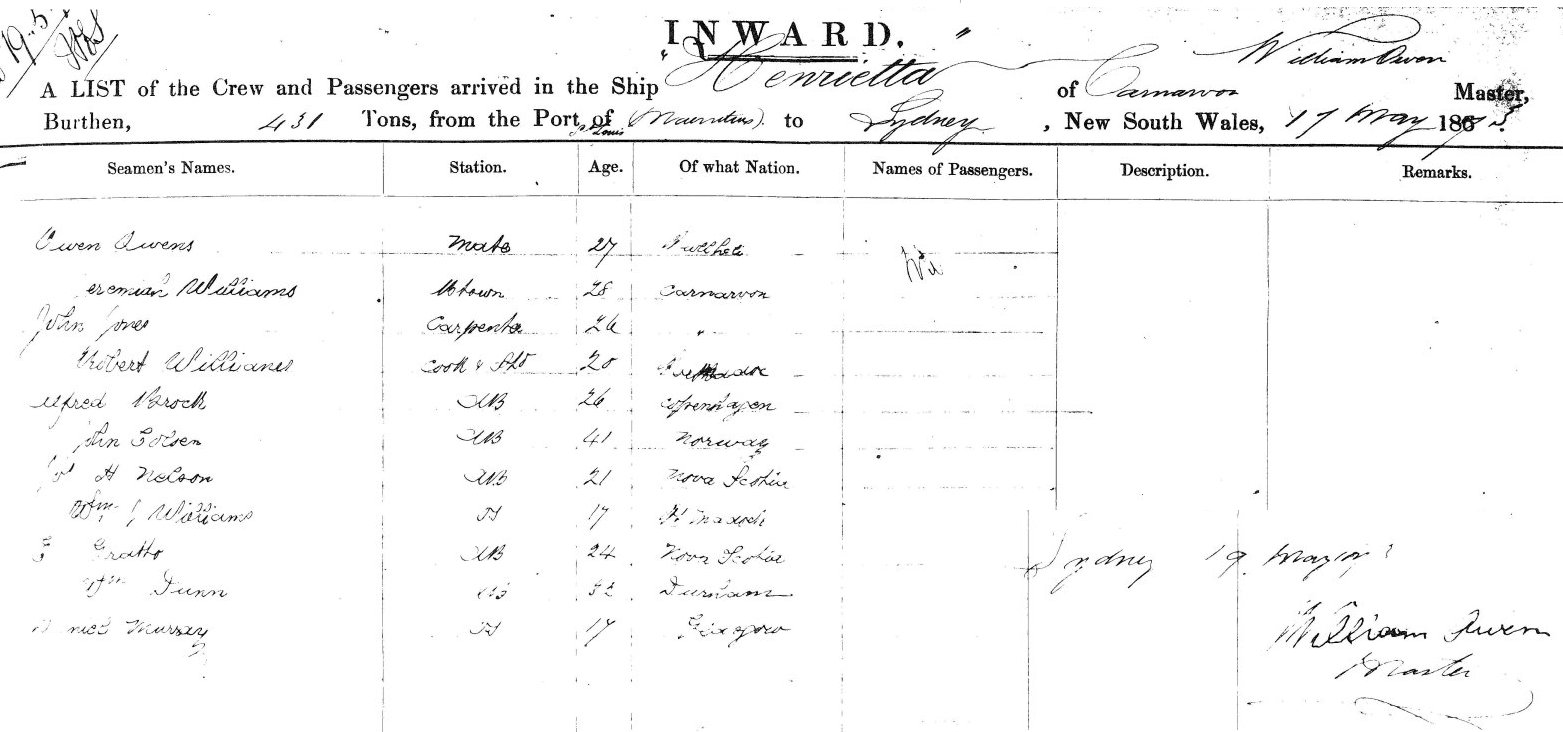 INWARD.
A LIST of the Crew and Passengers arrived in the Ship "Henrietta" of Carnarvon William Owen Master,
Burthen, 431 Tons, from the Port of Pt Louis (Mauritius) to Sydney, New South Wales, 17 May 1873.
Seamen's Names. Station. Age. Of what Nation. Names of Passengers. Description. Remarks.
Owen Owens Mate 27
eremiah Williams 28 Carnarvon
John Jones Carpenter 26 "
Robert Williams Cook & Std 20
Alfred Brock AB 26 Copenhagen
John AB 41 Norway
H Nelson AB 21 Nova Scotia
Wm J Williams 17 Pt Madoch
Gratto AB 24 Nova Scotia
Wm Dunn AB 32 Durham
Murray 17 Glasgow
Sydney 19 May
William Owen
Master